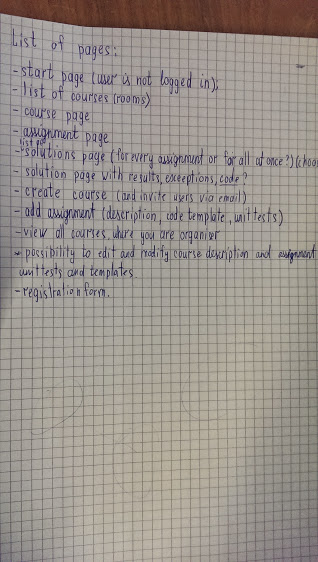 List of pages:
- start page (user is not logged in);
- list of courses (rooms)
- course page
- assignment page
list of
- solutions page (for every assignment or for all at once?)
- solution page with results, exceptions, code?
- create course (and invite users via email)
- add assignment (description, code template, unittests)
- view all courses, where you are organizer
- possibility to edit and modify course description and assignment
unittests and templates.
- registration form.